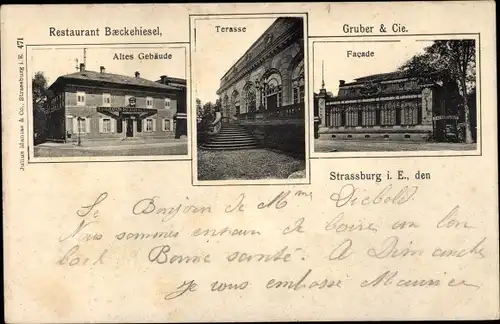 Restaurant Bæckehiesel,
Terasse
Gruber & Cie.
Altes Gebäude
Façade
Julius Manias & Co., Strassburg i. E. 471
Strassburg i. E., den
Le Bonjour de Mme Diebold
Nous sommes entrain de boire un bon
bock Bonne santé. A Dimanche
Je vous embrasse Maurice